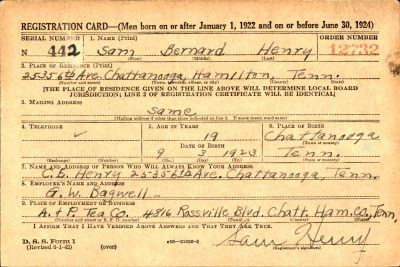 REGISTRATION CARD—(Men born on or after January 1, 1922 and on or before June 30, 1924)
SERIAL NUMBER 1. NAME (Print) ORDER NUMBER
N 442 Sam Bernard Henry 12732
(First) (Middle) (Last)
2. PLACE OF RESIDENCE (Print)
2535 6th Ave. Chattanooga, Hamilton, Tenn.
(Number and street) (Town, township, village, or city) (County) (State)
[THE PLACE OF RESIDENCE GIVEN ON THE LINE ABOVE WILL DETERMINE LOCAL BOARD
JURISDICTION; LINE 2 OF REGISTRATION CERTIFICATE WILL BE IDENTICAL]
3. MAILING ADDRESS
Same
[Mailing address if other than place indicated on line 2. If same insert word same]
4. TELEPHONE 5. AGE IN YEARS 6. PLACE OF BIRTH
19 Chattanooga
DATE OF BIRTH (Town or county)
9 3 1923 Tenn.
(Exchange) (Number) (Mo.) (Day) (Yr.) (State or country)
7. NAME AND ADDRESS OF PERSON WHO WILL ALWAYS KNOW YOUR ADDRESS
C.B. Henry 2535 6th Ave. Chattanooga, Tenn.
8. EMPLOYER'S NAME AND ADDRESS
G. W. Bagwell
9. PLACE OF EMPLOYMENT OR BUSINESS
A. & P. Tea Co. 4816 Rossville Blvd. Chatt. Ham. Co. Tenn.
(Number and street or R. F. D. number) (Town) (County) (State)
I AFFIRM THAT I HAVE VERIFIED ABOVE ANSWERS AND THAT THEY ARE TRUE.
D. S. S. Form 1
(Revised 6-1-42) (over) Sam Henry
(Registrant's signature)